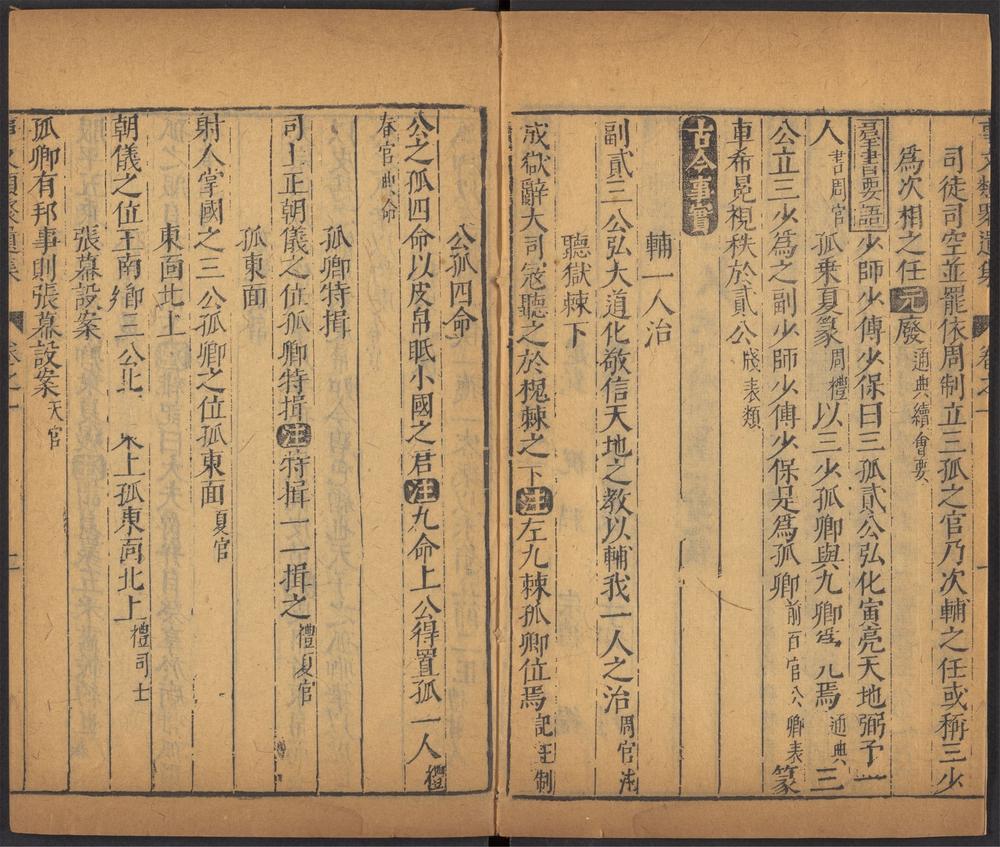 司徒司空並罷依周制立三孤之官乃次輔之任或稱三少
為次相之任元廢通典續會要
羣書要語少師少傅少保曰三孤貳公弘化寅亮天地弼予一
人書周官孤乗夏篆周禮以三少孤卿與九卿焉通典三
公立三少為之副少師少傅少保是為孤卿前百官公卿表篆
車希冕視秩於貳公牋表類
古今事實
輔一人治
副貳三公弘大道化敬信天地之教以輔我一人之治周官
聽獄棘下
成獄辭大司寇聽之於槐棘之下注左九棘孤卿位焉記王制
公孤四命
公之孤四命以皮帛眡小國之君注九命上公得置孤一人禮
春官典命
孤卿特揖
司士正朝儀之位孤卿特揖注特揖一一揖之禮夏官
孤東面
射人掌國之三公孤卿之位孤東面夏官
東面北上
朝儀之位王南鄉三公北上孤東面北上禮司士
張幕設案
孤卿有邦事則張幕設案天官